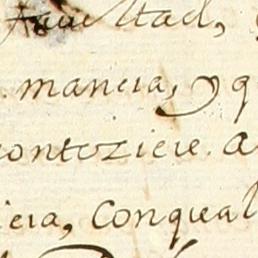 facultad,
mancia, y q
contoziere. a
ieia, conqueal